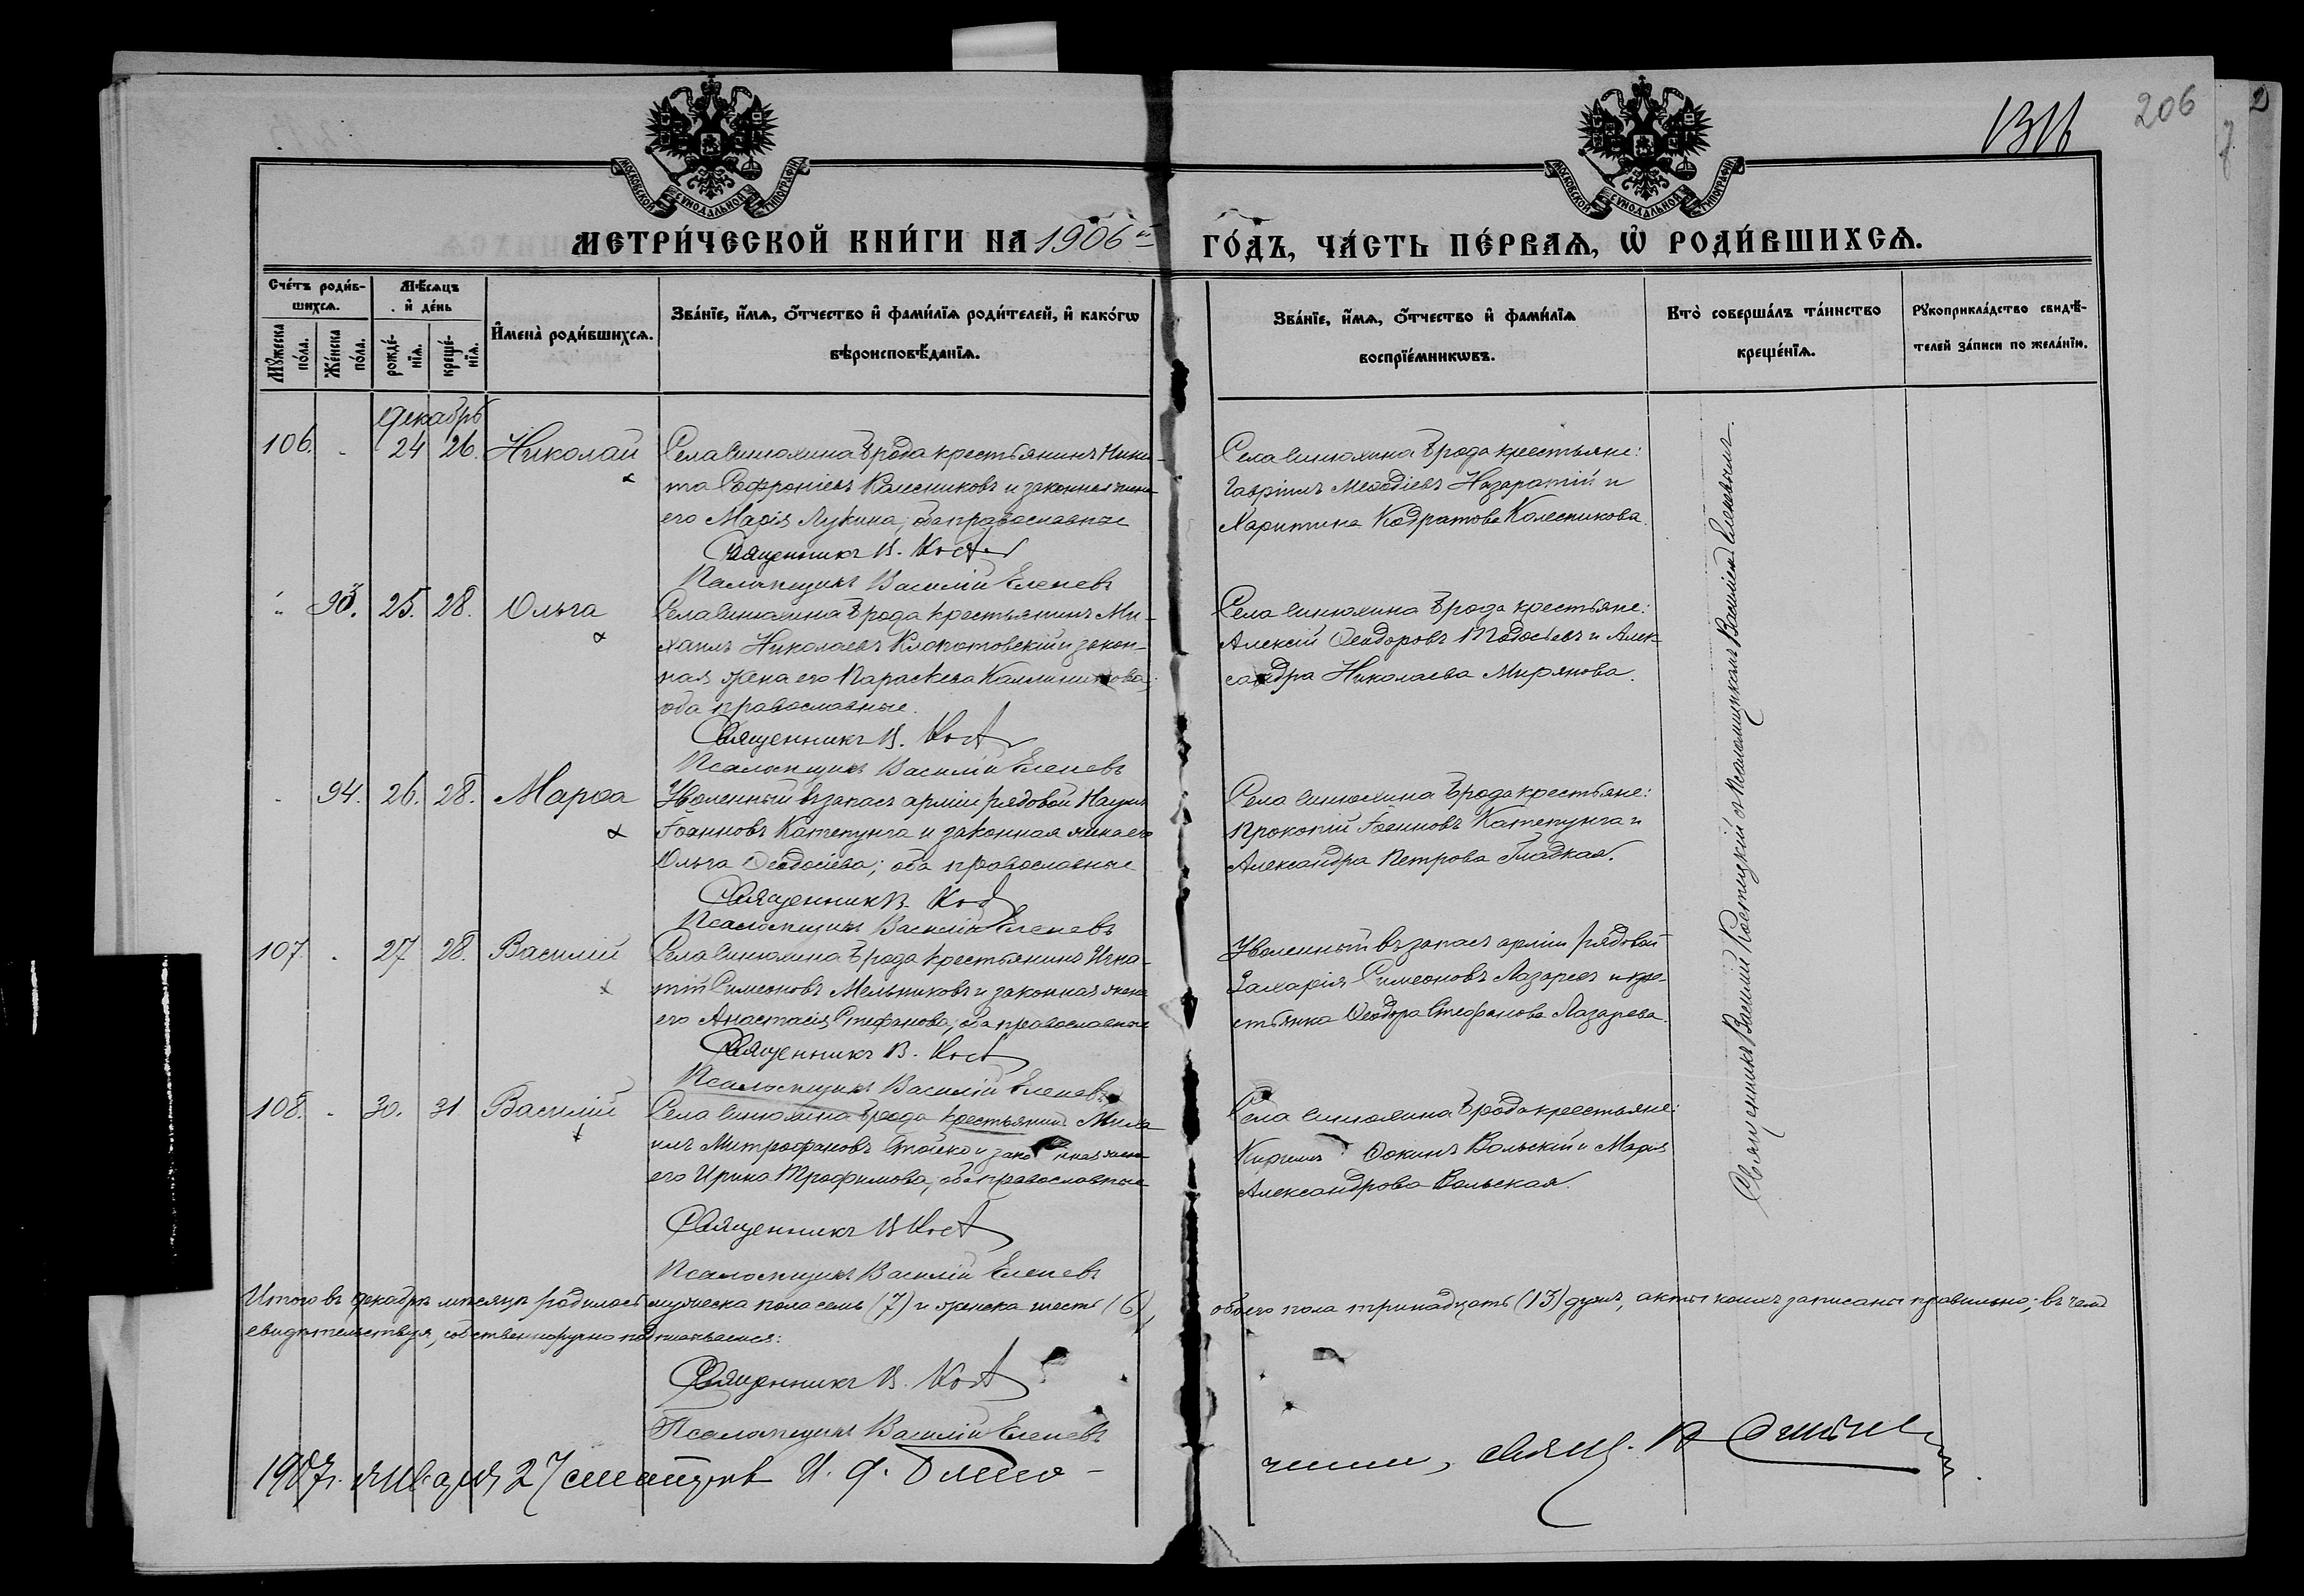 206
МОСКОВСКОЙ СѴНОДАЛЬНОЙ ТИПОГРАФІИ
МОСКОВСКОЙ СѴНОДАЛЬНОЙ ТИПОГРАФІИ
МЕТРИ́ЧЕСКОЙ КНИ́ГИ НА 1906й ГО́ДЪ, ЧА́СТЬ ПЕ́РВАѦ, Ѡ҆ РОДИ́ВШИХСѦ.
Сче́тъ роди́в-
шихсѧ.
Мꙋ́жеска по́ла.
Же́нска по́ла.
Мѣ́сѧцъ
и҆ де́нь
рожде́-
нїѧ.
креще́-
нїѧ.
И҆мена̀ роди́вшихсѧ.
Зва́нїе, и҆́мѧ, ѻ҆́тчество и҆ фами́лїѧ роди́телей, и҆ како́гѡ
вѣроисповѣ́данїѧ.
Зва́нїе, и҆́мѧ, ѻ҆́тчество и҆ фами́лїѧ
воспрїе́мникѡвъ.
Кто̀ соверша́лъ та́инство
креще́нїѧ.
Рꙋкоприкла́дство свидѣ́-
телей за́писи по жела́нїю.
Декабрь
106. 24 26. Николай
Села Синюхина Брода крестьянинъ Ники-
та Софроніевъ Колесниковъ и законная жена
его Марія Лукина, оба православные
Священникъ В. Кост
Псаломщикъ Василій Еленевъ
Села Синюхина Брода крестьяне:
Гавріилъ Меѳодіевъ Назаратій и
Харитина Кодратова Колесникова.
93. 25. 28. Ольга
Села Синюхина Брода крестьянинъ Ми-
хаилъ Николаевъ Клопотовскій и закон-
ная жена его Параскева Каллиникова;
оба православные.
Священникъ В. Кост
Псаломщикъ Василій Еленевъ
Села Синюхина Брода крестьяне:
Алексій Ѳеодоровъ Тодосьевъ и Алек-
сандра Николаева Мирянова.
94. 26. 28. Марѳа
Уволенный въ запасъ арміи рядовой Наумъ
Іоанновъ Катепунга и законная жена его
Ольга Ѳеодосіева; оба православные
Священникъ В. Кос
Псаломщикъ Василій Еленевъ
Села Синюхина Брода крестьяне:
Прокопій Іоанновъ Катепунга и
Александра Петрова Гладкая.
107. 27 28. Василій
Села Синюхина Брода крестьянинъ Игна-
тій Симеоновъ Мельниковъ и законная жена
его Анастасія Стефанова, оба православные
Священникъ В. Кост
Псаломщикъ Василій Еленевъ
Уволенный въ запасъ арміи рядовой
Захарія Симеоновъ Лазаревъ и кре-
стьянка Ѳеодора Стефанова Лазарева.
108. 30. 31 Василій
Села Синюхина Брода крестьянинъ Миха-
илъ Митрофановъ Стойко и законная жена
его Ирина Трофимова, оба православные
Священникъ В Кост
Псаломщикъ Василій Еленевъ
Села Синюхина Брода крестьяне:
Кириллъ Ѳокинъ Вольскій и Марія
Александрова Вольская.
Священникъ Василій Костецкій съ псаломщикомъ Василіемъ Еленевымъ.
Итого въ декабрѣ мѣсяцѣ родилось мужеска пола семь (7) и женска шесть (6), обоего пола тринадцать (13) душъ, акты коихъ записаны правильно; въ чемъ
свидѣтельствуя, собственноручно подписываемся:
Священникъ В. Кост
Псаломщикъ Василій Еленевъ
1907г. января 27 смотрѣлъ И. д. Благо-
чинн, свящ. В